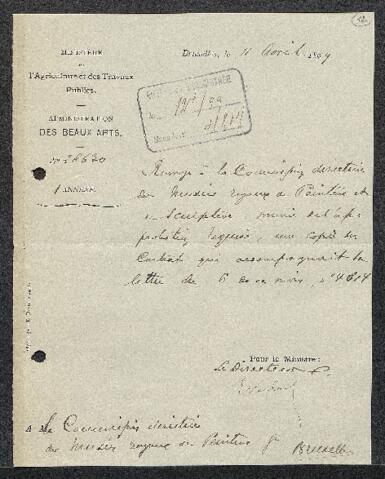 MINISTÈRE
de
l'Agriculture et des Travaux
Publics.
ADMINISTRATION
DES BEAUX-ARTS.
1 ANNEXE.
Bruxelles, le 11 Avril 1889
Renvoyé à la Commission directrice
des Musées royaux de Peinture et
de Sculpture, munie de l'ap-
probation requise, une copie du
Contrat qui accompagnait la
lettre du 6 de ce mois, n° 4614
Pour le Ministre:
Le Directeur
A la Commission directrice
des Musées royaux de Peinture &a Bruxelles